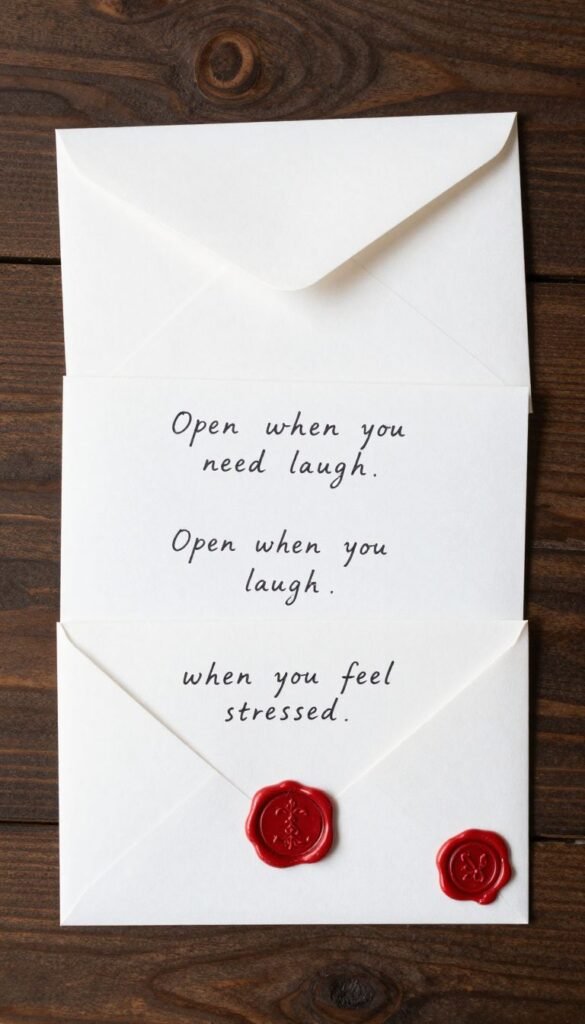 Open when you
need laugh.
Open when you
laugh.
when you feel
stressed.